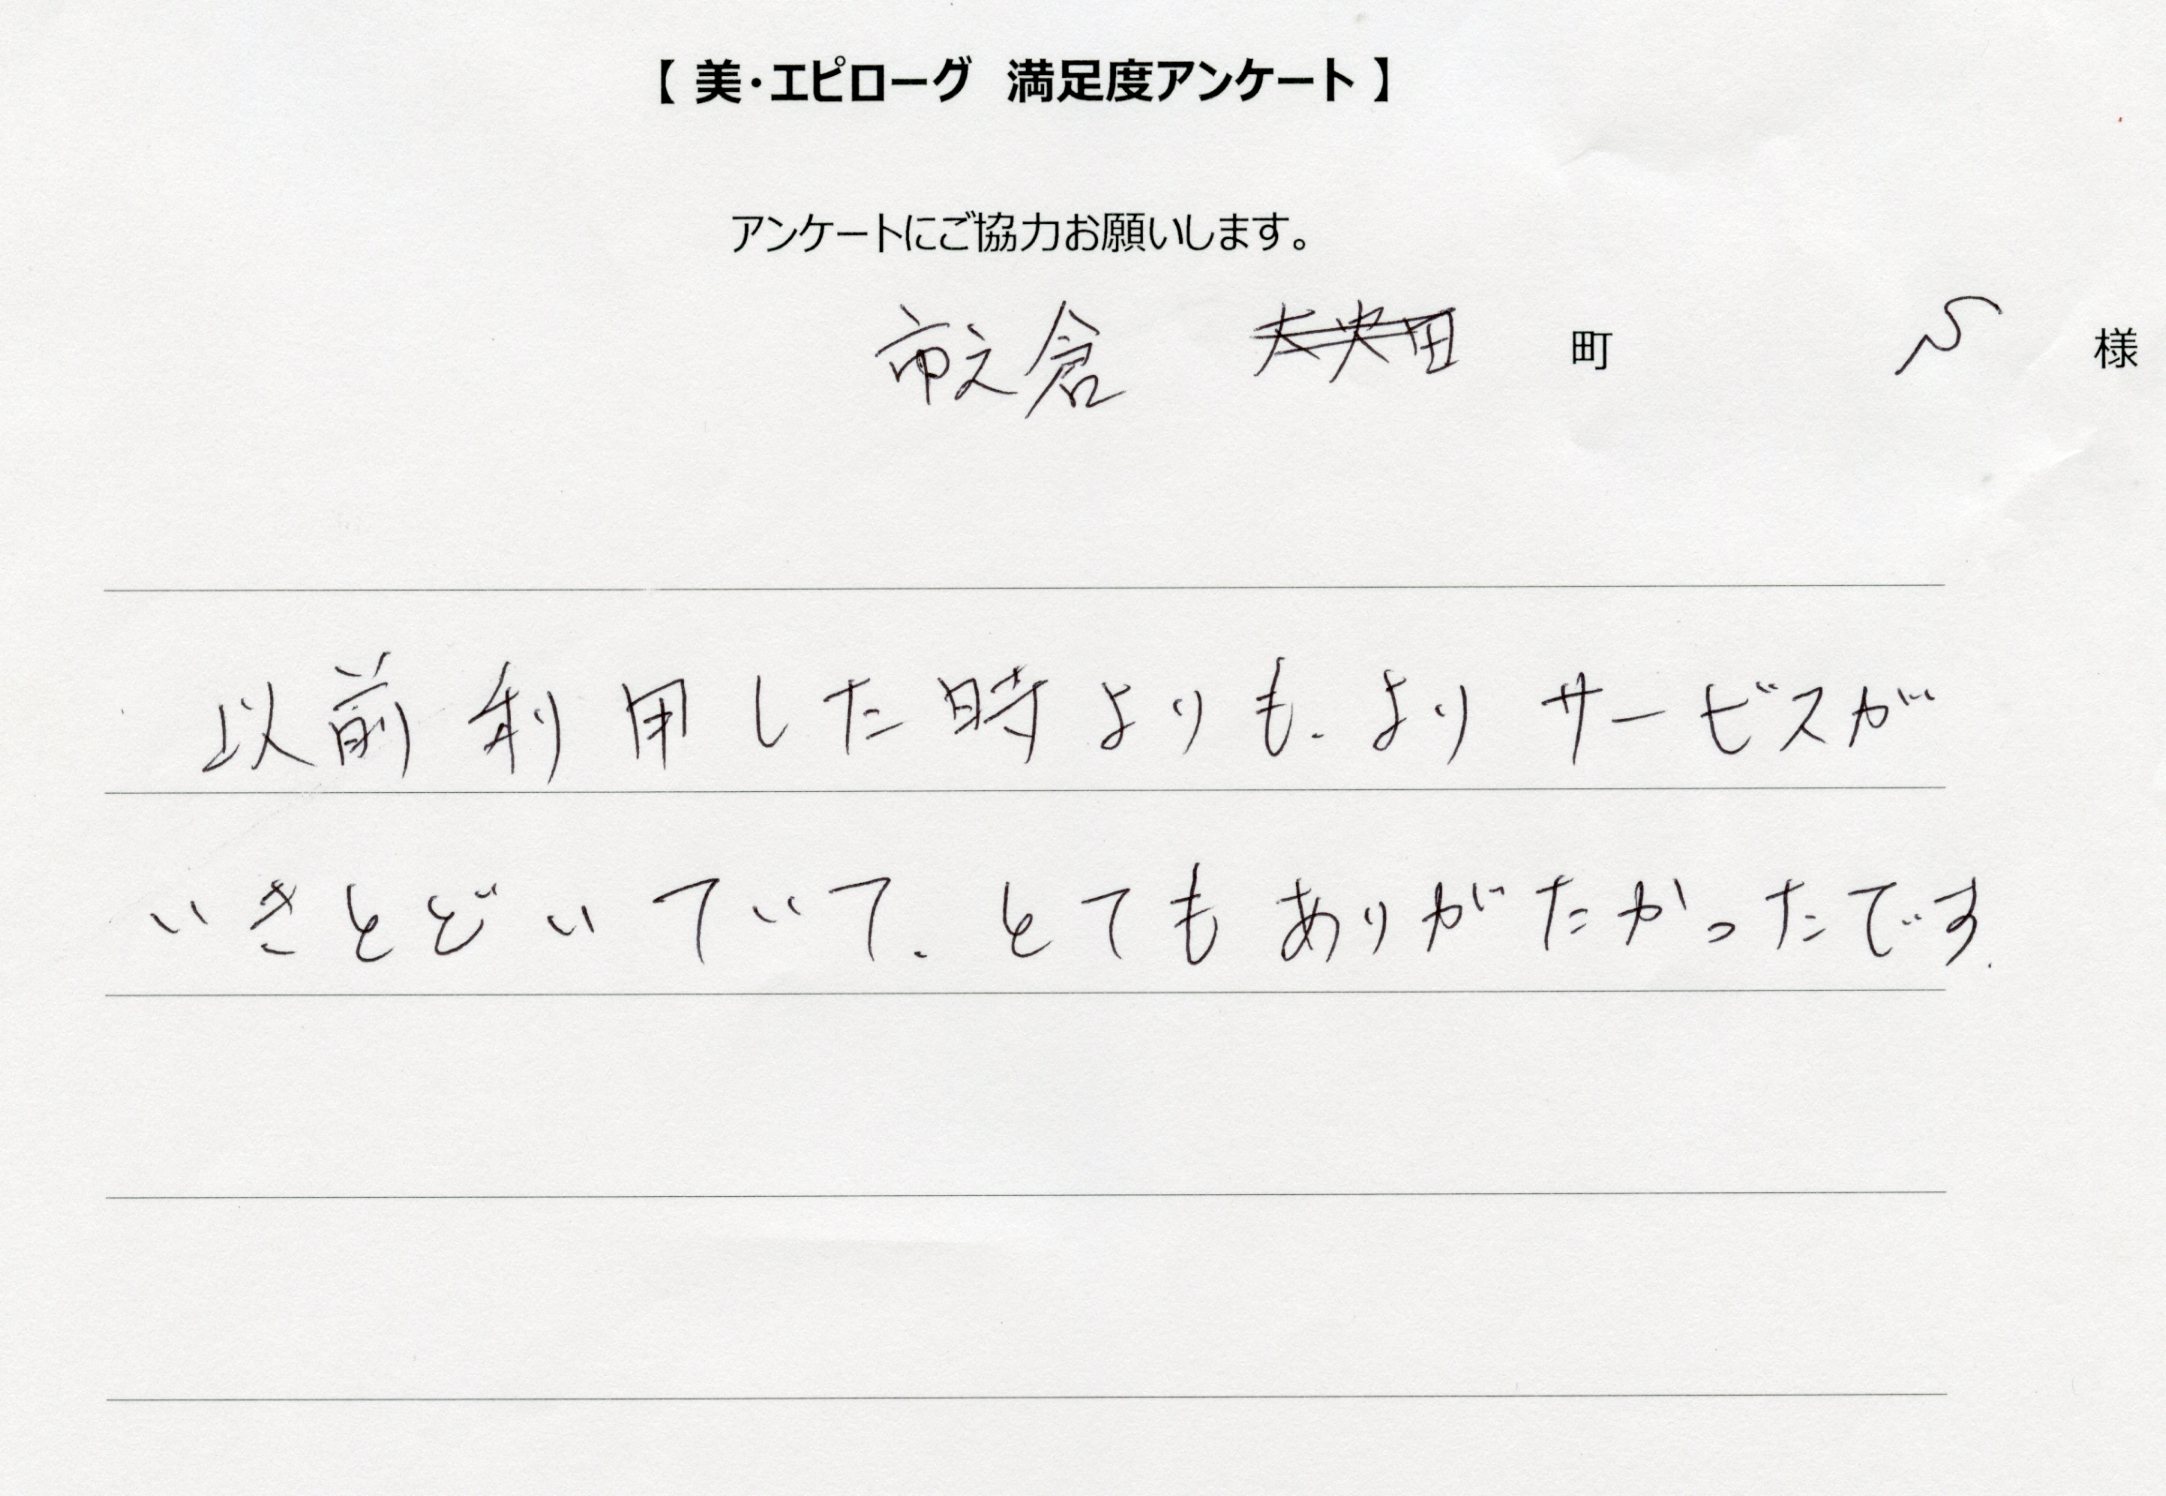 【 美・エピローグ 満足度アンケート 】
アンケートにご協力お願いします。
市之倉 町 様
以前利用した時よりも、よりサービスが
いきとどいていて、とてもありがたかったです。